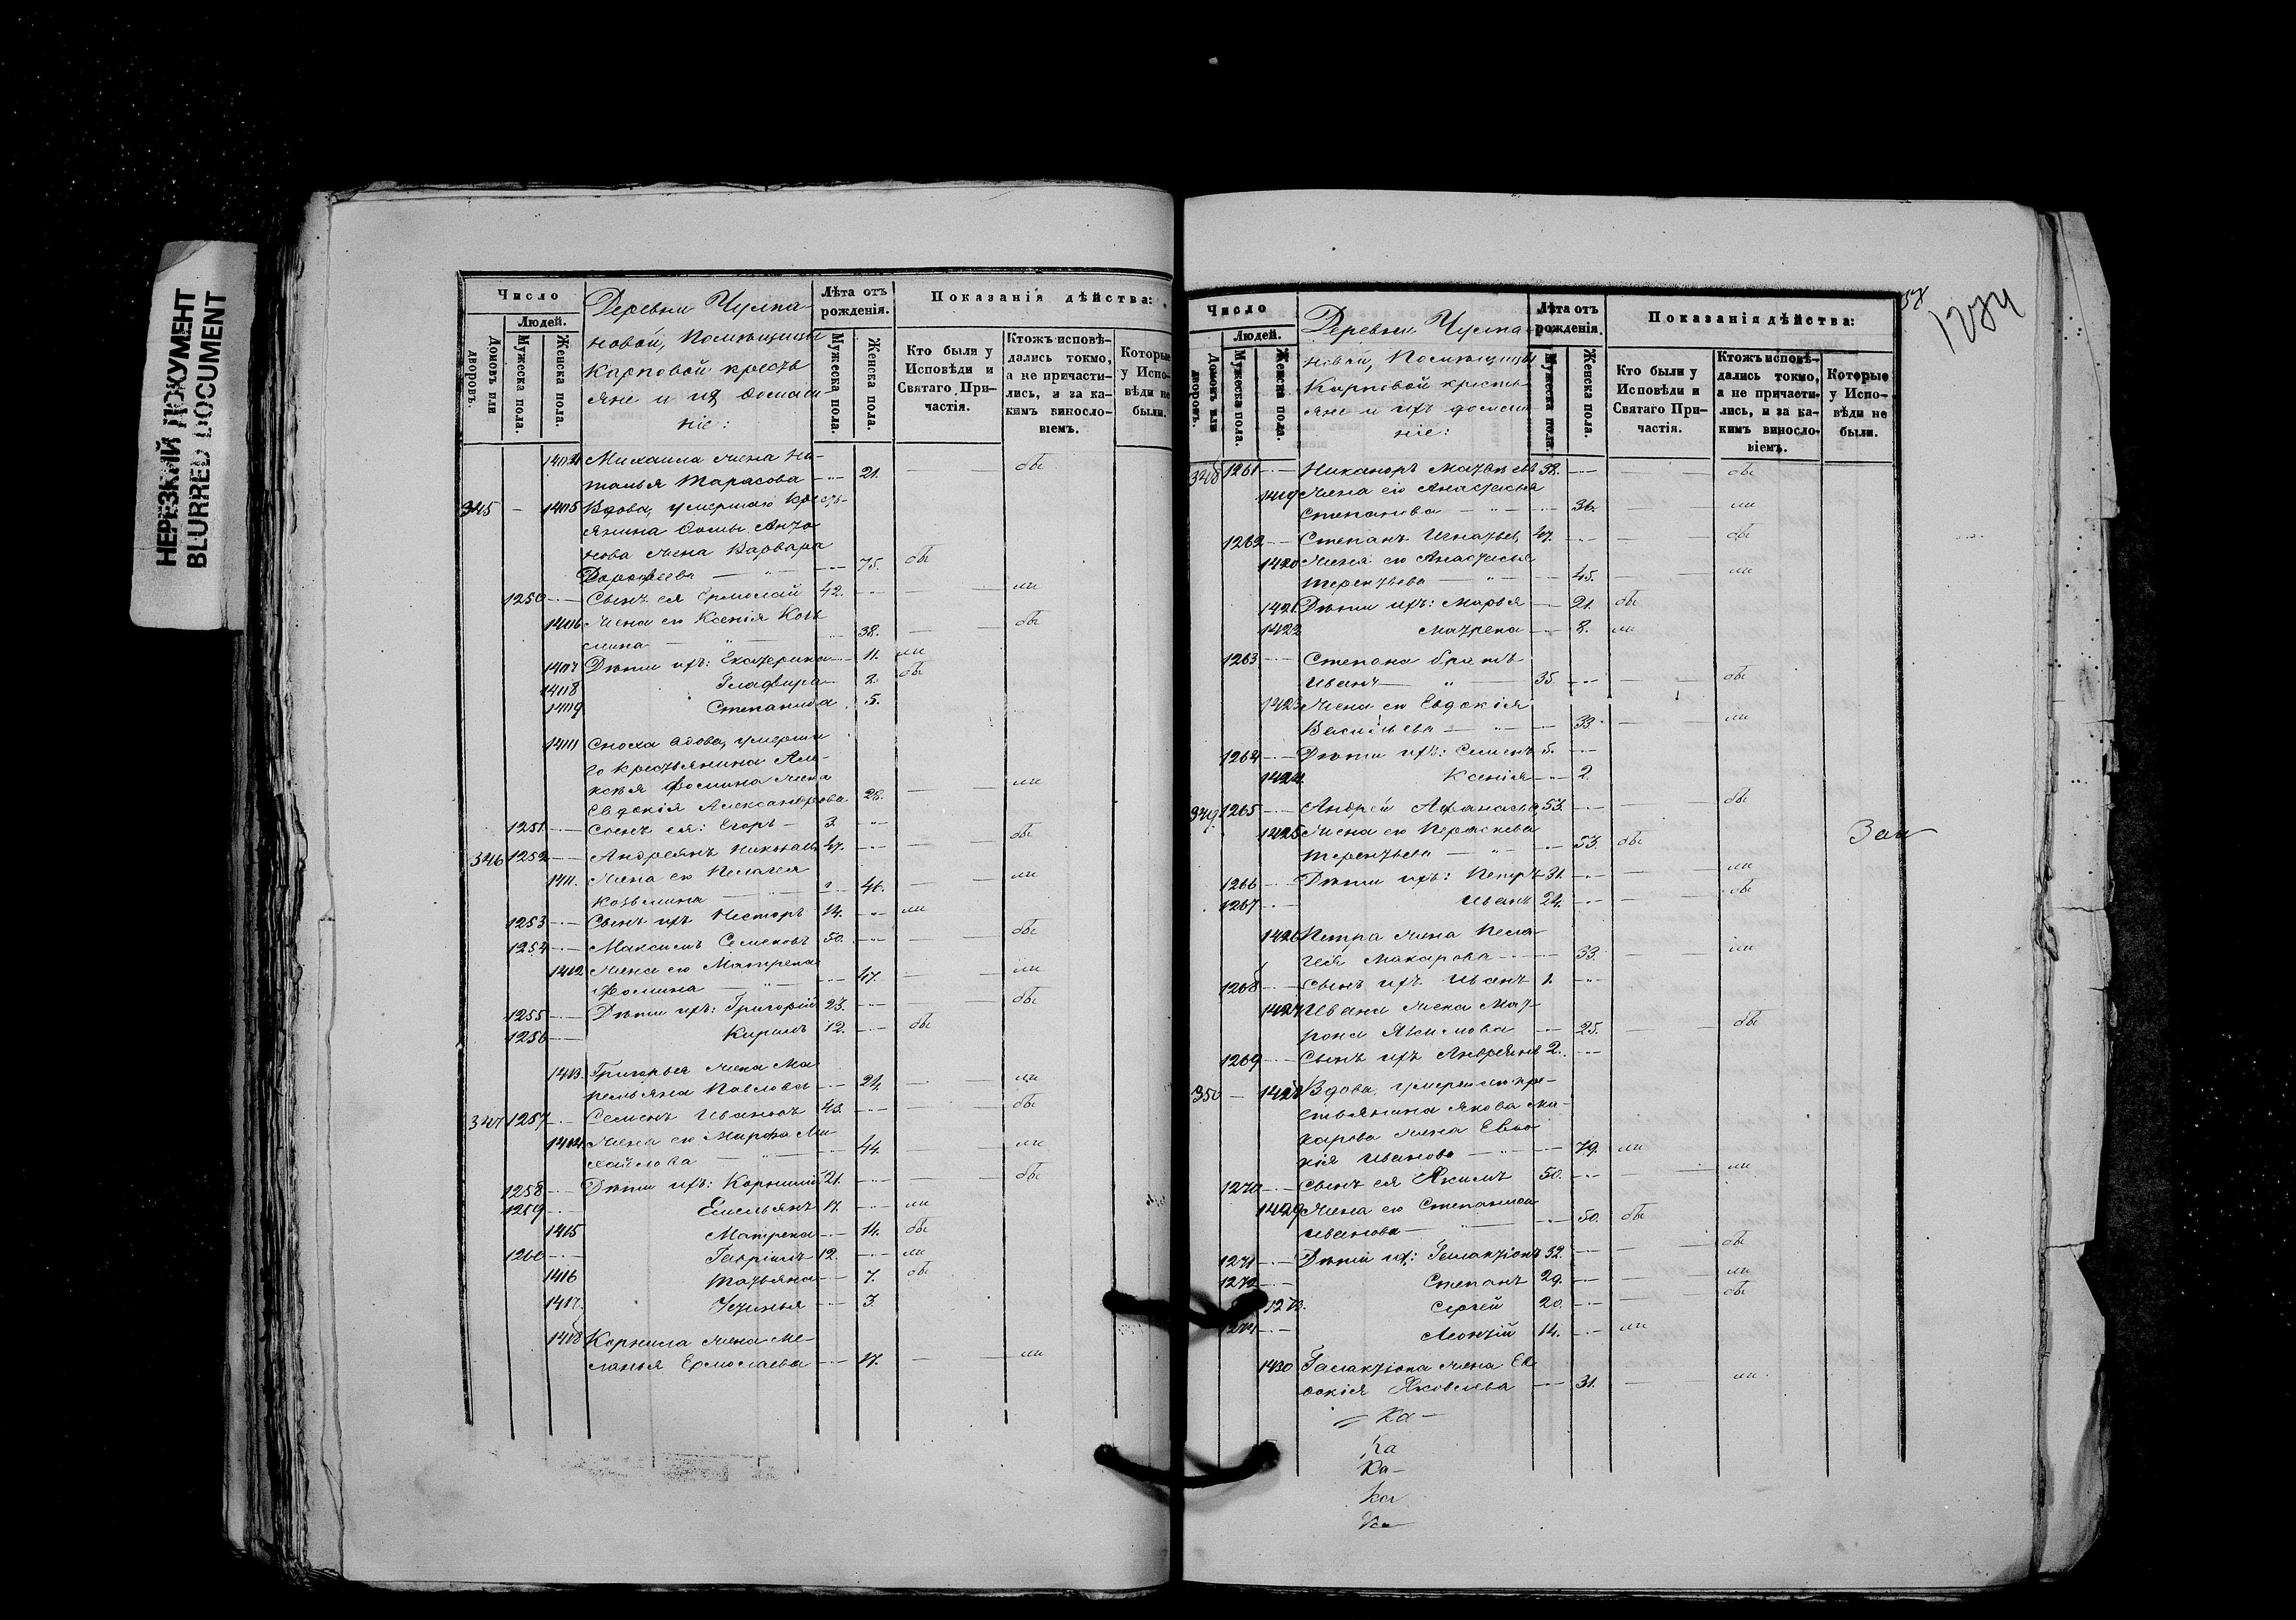 НЕРЕЗКИЙ ДОКУМЕНТ
BLURRED DOCUMENT
Число
Людей.
Домовъ или дворовъ.
Мужеска пола.
Женска пола.
Деревни Чулпа-
новой, Помѣщицы
Карповой кресть
яне и ихъ домаш
ніе:
Лѣта отъ рожденія.
Мужеска пола.
Женска пола.
Показанія дѣйства:
Кто были у Исповѣди и Святаго При-частія.
Ктожъ исповѣ-дались токмо, а не причасти-лись, и за ка-кимъ винословіемъ.
Которые у Испо-вѣди не были.
1404 Михаила жена На-
талья Тарасова 21. бы
345 1405 Вдова, умершаго крестъ-
янина Фомы Анто
нова жена Варвара
Дорофеева 75. бы
1250 Сынъ ея Ермолай 42. ли
1406 Жена его Ксенія Козь
мина 38. бы
1407 Дѣти ихъ: Екатерина 11. ли
1408 Глафира 2. бы
1409 Степанида 5.
Сноха вдова, умерша
го крестьянина Але-
ксѣя Фомина жена
Евдокія Александрова 28. ли
1251 Сынъ ея: Егоръ 3.
346 1252 Андреянъ 47. бы
1411. Жена его Пелагея
Козьмина 46. ли
1253 Сынъ ихъ Несторъ 14. ли
1254 Максимъ Семеновъ 50. бы
1412 Жена его Матрена
Фомина 47. ли
1255 Дѣти ихъ: Григорій 23. бы
1256 Кирилъ 12. бы
1413. Григорья жена Ма
ремьяна Павлова 24. ли
347 1257 Семенъ Ивановъ 43. бы
1414 Жена его Марфа Ми
хайлова 44. ли
1258 Дѣти ихъ: Корнилій 21. бы
1259 Емельянъ 17. ли
1415 Матрена 14. бы
1260 Гавріилъ 12. ли
1416 Татьяна 7. бы
1417. Устинья 3.
1418 Корнила жена Ме-
ланья Ермолаева 17. ли
1274
Число
Людей.
Домовъ или дворовъ.
Мужеска пола.
Женска пола.
Деревни Чулпа-
новой, Помѣщицы
Карповой кресть-
яне и ихъ домаш
ніе:
Лѣта отъ рожденія.
Мужеска пола.
Женска пола.
Показанія дѣйства:
Кто были у Исповѣди и Святаго При-частія.
Ктожъ исповѣ-дались токмо, а не причасти-лись, и за ка-кимъ винословіемъ.
Которые у Испо-вѣди не были.
348 1261 Никаноръ Матвѣевъ 38. бы
1419 Жена его Анастасья
Степанова 36. ли
1262 Степанъ Игнатьев 47. бы
1420 Жена его Анастасья
Терентьева 45. ли
1421. Дѣти ихъ: Марья 21. бы
1422 Матрена 8. ли
1263 Степана братъ
Иванъ 35 бы
1423 Жена его Евдокія
Васильева 33. ли
1264 Дѣти ихъ: Семенъ 5.
1424 Ксенія 2.
349. 1265 Андрей Афанасьев 53. бы
1425 Жена его Параскева
Терентьева 53. бы
1266 Дѣти ихъ: Петръ 31. ли
1267 Иванъ 24. бы
1426 Петра жена Пела-
гея Макарова 33. ли
1268 Сынъ ихъ Иванъ 1.
1427 Ивана жена Мат-
рона Якимова 25. бы
1269 Сынъ ихъ Андреянъ 2.
350 1428 Вдова, умершаго кре-
стьянина Якова Ма-
карова жена Евдо
кія Иванова 79. ли
1270 Сынъ ея Якимъ 50. ли
1429 Жена его Степанида
Иванова 50. бы
1271 Дѣти их: Галактіонъ 32. бы
1272 Степанъ 29. ли
1273. Сергей 20. бы
1274 Леонтій 14. ли
1430 Галактіона жена Ев
докія Яковлева 31. ли
Ка
Ка
Ка
Ка
Ка